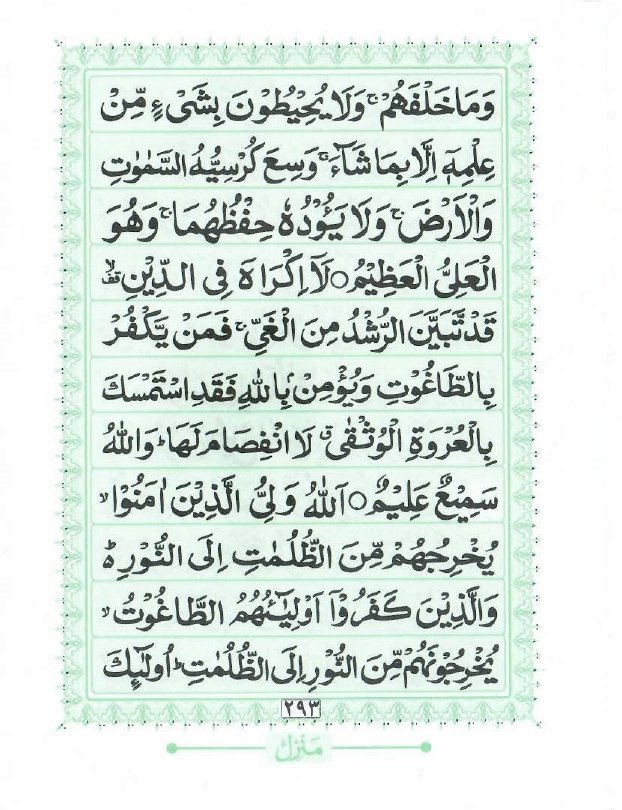 وَمَا خَلْفَهُمْ ۚ وَلَا يُحِيْطُوْنَ بِشَىْءٍ مِّنْ
عِلْمِهٖٓ اِلَّا بِمَا شَآءَ ۚ وَسِعَ كُرْسِيُّهُ السَّمٰوٰتِ
وَالْاَرْضَ ۚ وَلَا يَـُٔوْدُهٗ حِفْظُهُمَا ۚ وَهُوَ
الْعَلِىُّ الْعَظِيْمُ ○ لَآ اِكْرَاهَ فِى الدِّيْنِ ۙ قف
قَدْ تَّبَيَّنَ الرُّشْدُ مِنَ الْغَىِّ ۚ فَمَنْ يَّكْفُرْ
بِالطَّاغُوْتِ وَيُؤْمِنْۢ بِاللّٰهِ فَقَدِ اسْتَمْسَكَ
بِالْعُرْوَةِ الْوُثْقٰى ۗ لَا انْفِصَامَ لَهَا ؕ وَاللّٰهُ
سَمِيْعٌ عَلِيْمٌ ○ اَللّٰهُ وَلِىُّ الَّذِيْنَ اٰمَنُوْا ۙ
يُخْرِجُهُمْ مِّنَ الظُّلُمٰتِ اِلَى النُّوْرِ ؕ
وَالَّذِيْنَ كَفَرُوْٓا اَوْلِيٰٓـُٔهُمُ الطَّاغُوْتُ ۙ
يُخْرِجُوْنَهُمْ مِّنَ النُّوْرِ اِلَى الظُّلُمٰتِ ؕ اُولٰٓئِكَ
۲۹۳
مَنْزِل